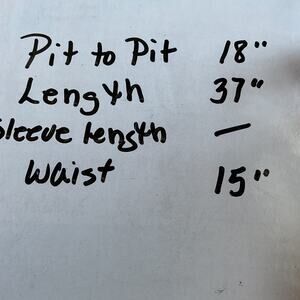 Pit to Pit 18"
Length 37"
Sleeve length —
Waist 15"